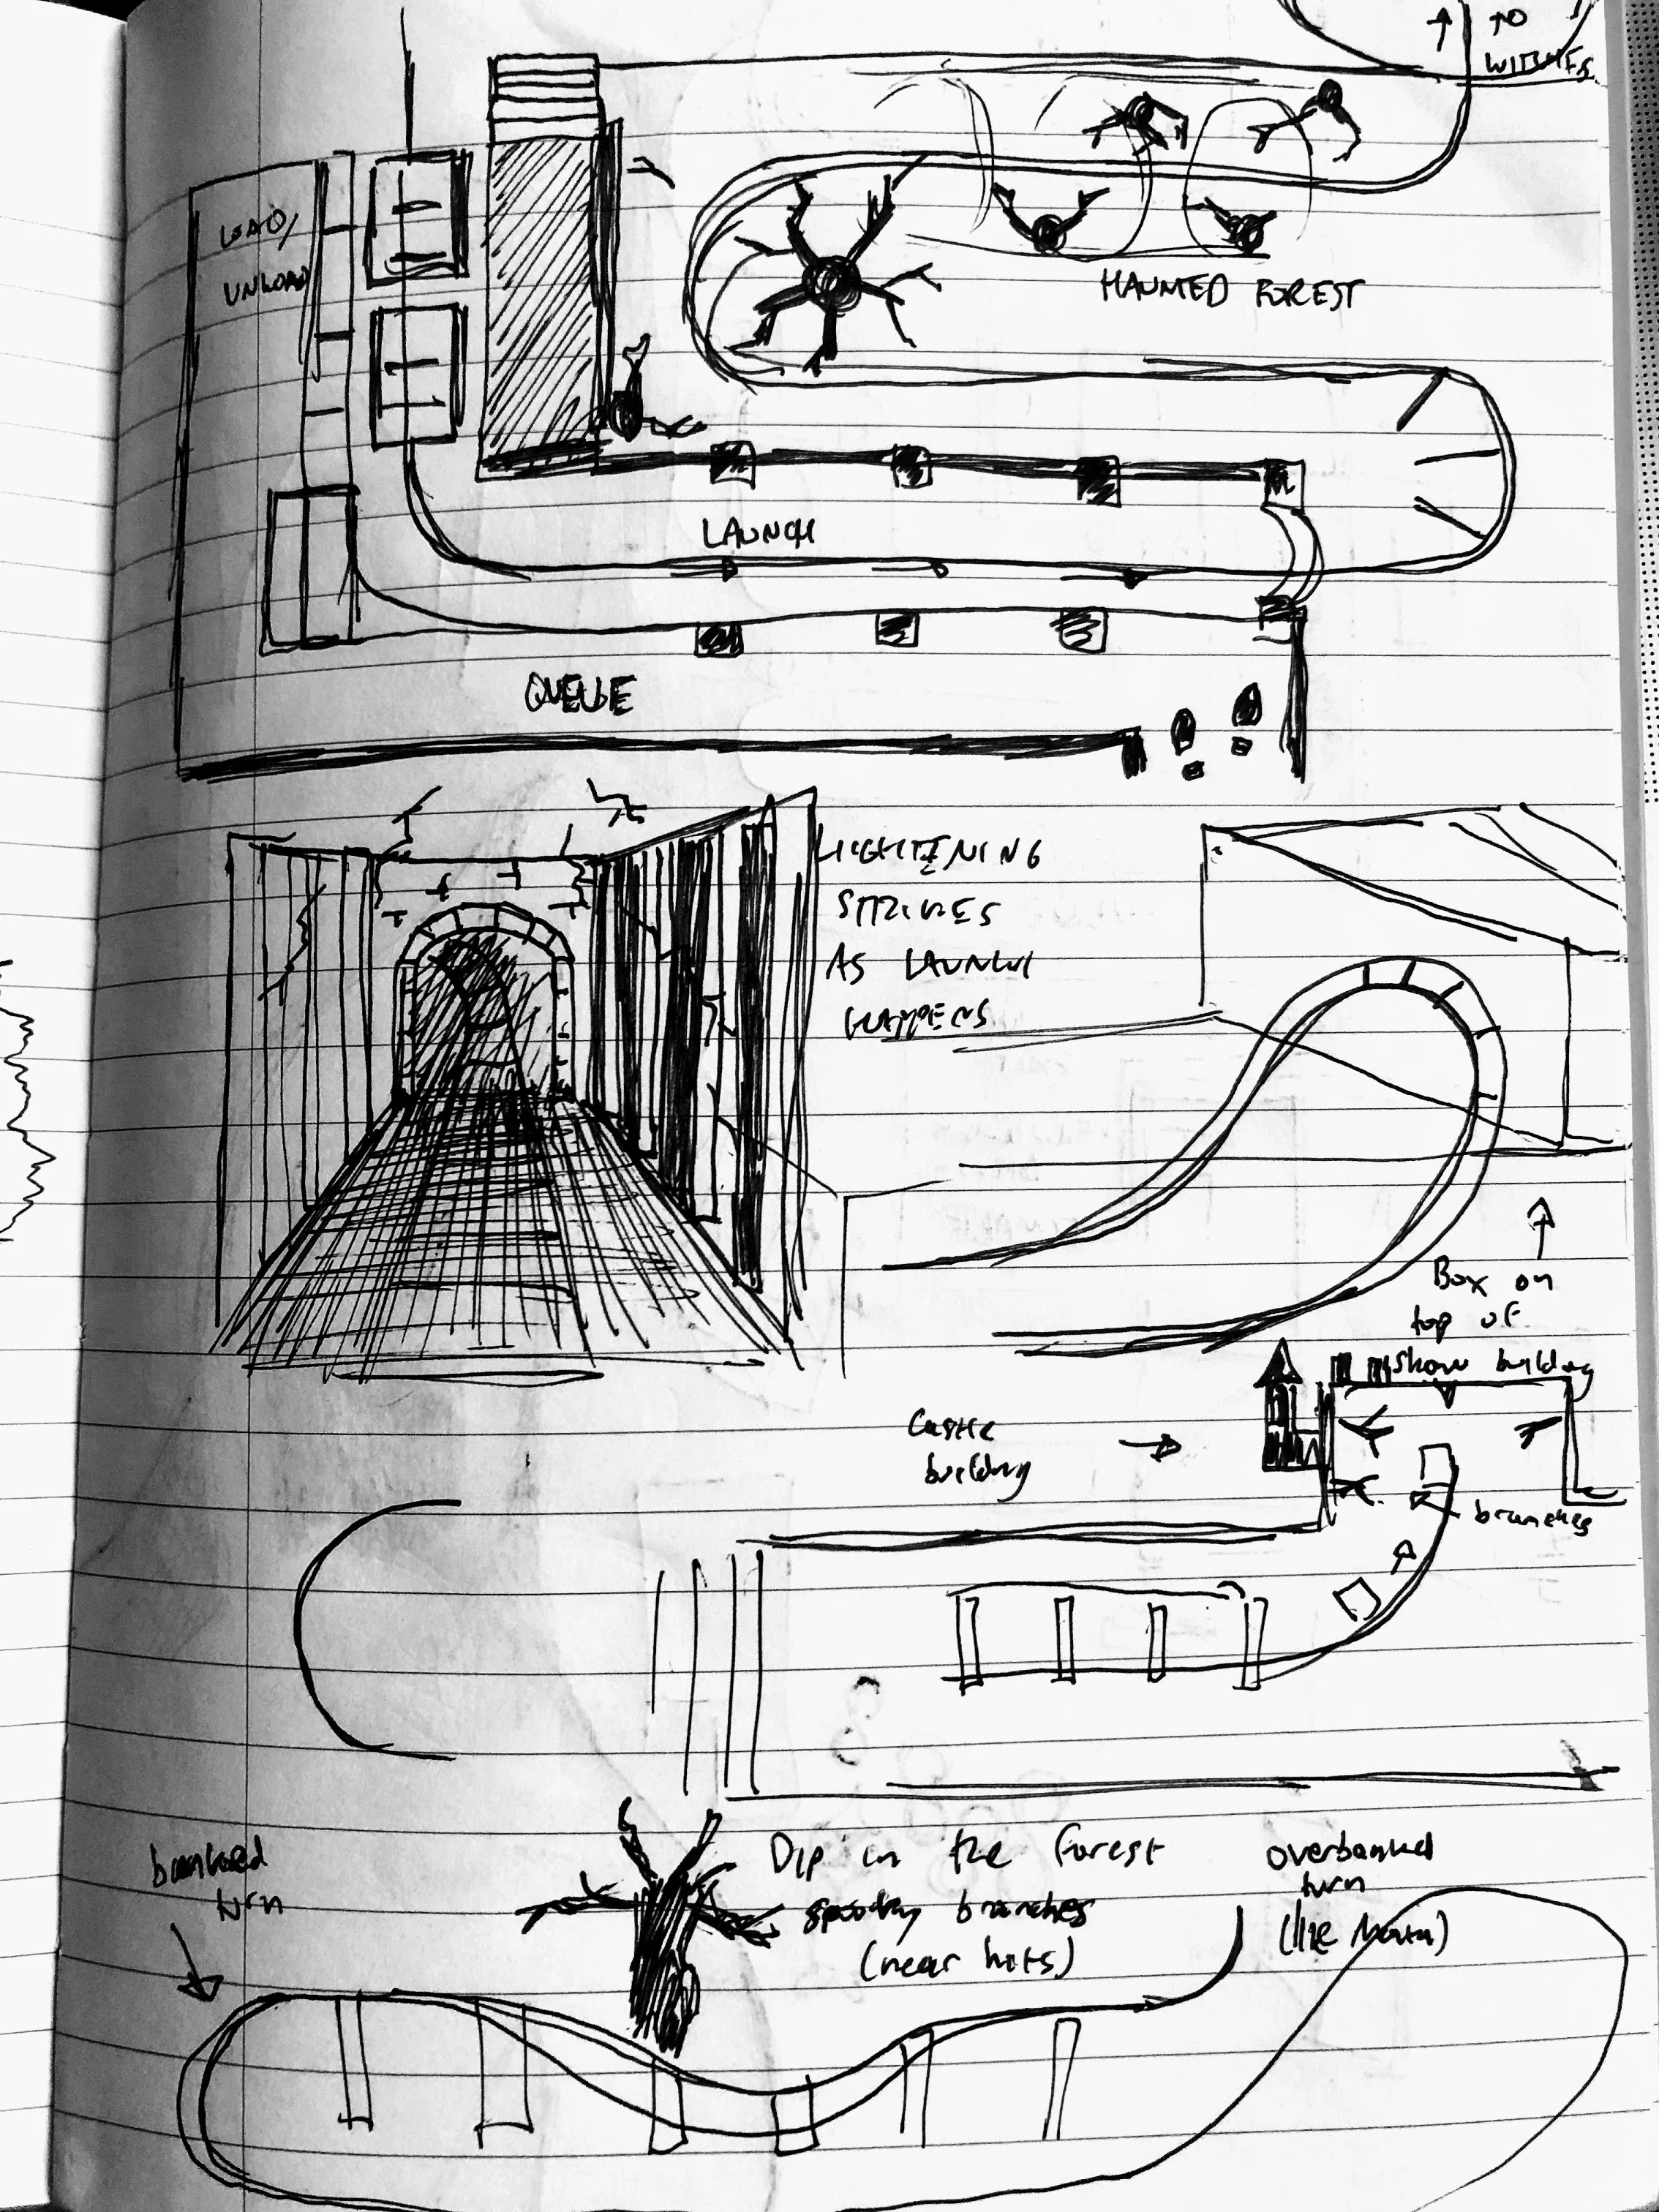 ↑ TO
WITCHES
LOAD/
UNLOAD
HAUNTED FOREST
LAUNCH
QUEUE
LIGHTENING
STRIKES
AS LAUNCH
HAPPENS
Box on
top of
show building
Castle
building
branches
banked
turn
Dip in the forest
spooky branches
(near hits)
overbanked
turn